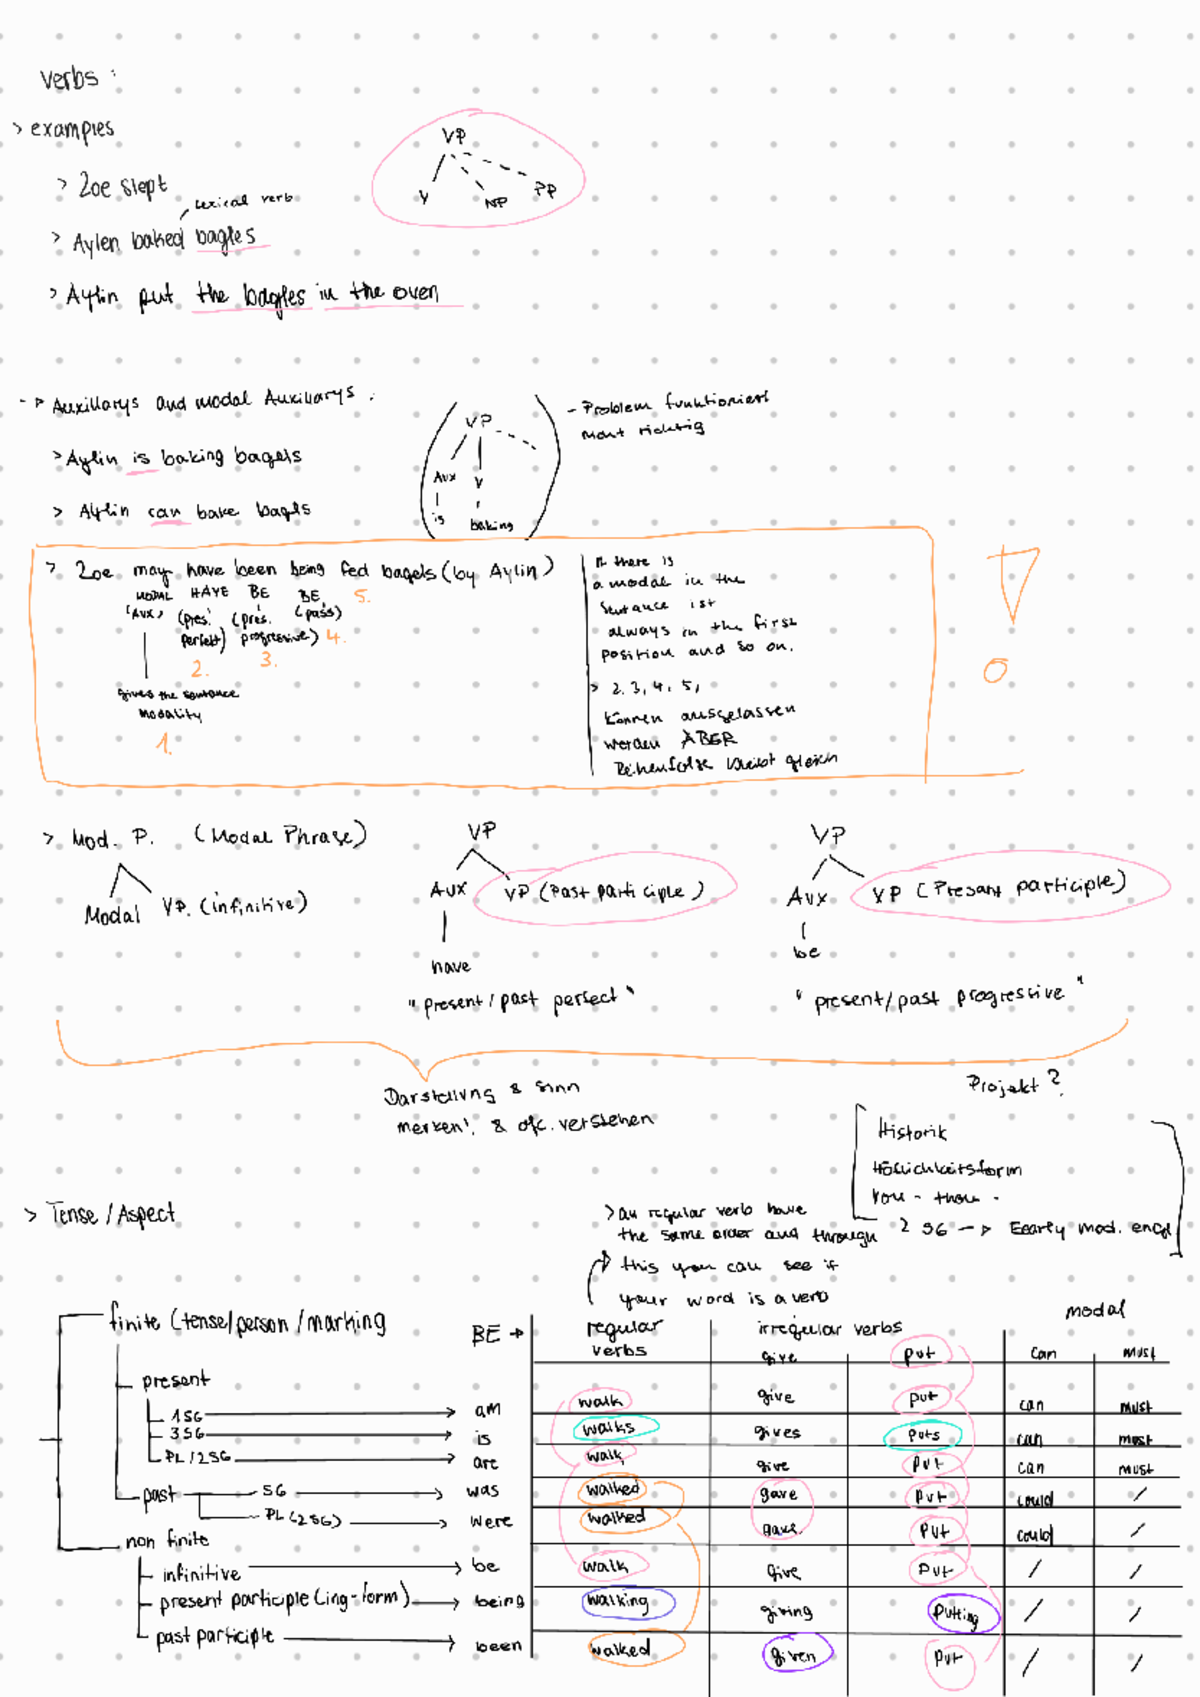 verbs :
> examples
VP
V NP PP
> Zoe slept
lexical verb
> Aylen baked bagles
> Aylin put the bagles in the oven
-> Auxillarys and modal Auxillarys :
VP
Aux V
is baking
- Problem funktioniert
nicht richtig
> Aylin is baking bagels
> Aylin can bake bagls
> Zoe may have been being fed bagels (by Aylin)
MODAL HAVE BE BE 5.
(AUX) (pres. (pres. (pass)
perfekt) progressive) 4.
2. 3.
gives the sentance
modality
1.
If there is
a modal in the
sentance ist
always in the first
position and so on.
> 2, 3, 4, 5,
können ausgelassen
werden ABER
Reihenfolge bleibt gleich
!
> Mod. P. (Modal Phrase)
Modal VP. (infinitive)
VP
Aux VP (Past participle)
have
"present/past perfect"
VP
Aux VP (Presant participle)
be
"present/past progressive"
Darstellung & Sinn
merken! & ofc. verstehen
Projekt?
Historik
Höflichkeitsform
you - thou -
2 SG -> Eearly mod. engl
> Tense / Aspect
> all regular verb have
the same order and through
this you can see if
your word is a verb
finite (tense/person/marking
present
1SG
3SG
PL/2SG
past SG
PL(2SG)
non finite
infinitive
present participle (ing-form)
past participle
BE → regular verbs irregular verbs modal
give put can must
am walk give put can must
is walks gives puts can must
are walk give put can must
was walked gave put could /
were walked gave put could /
be walk give put / /
being walking giving putting / /
been walked given put / /